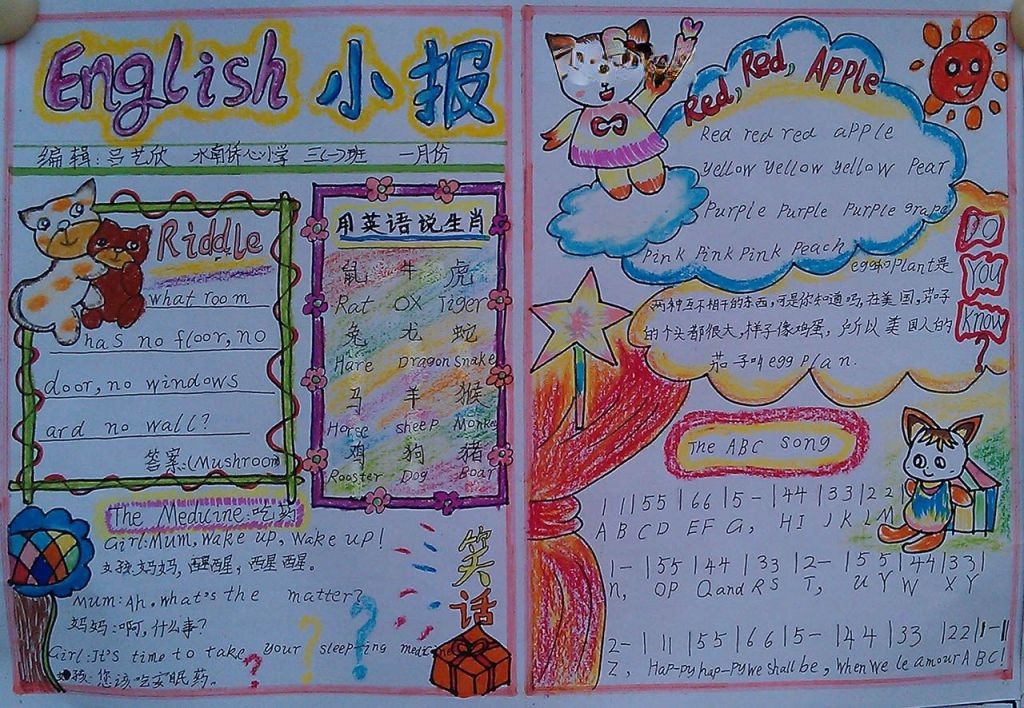 English 小报
编辑:吕艺欣 水南侨心小学 三(一)班 一月份
Riddle
what room
has no floor, no
door, no windows
ard no wall?
答案:(Mushroom
用英语说生肖
鼠 牛 虎
Rat OX Tiger
兔 龙 蛇
Hare Dragon snake
马 羊 猴
Horse sheep Monkey
鸡 狗 猪
Rooster Dog Boar
The Medicine:吃药
Girl:Mum, wake up, wake up!
女孩:妈妈,醒醒,醒醒。
Mum:Ah. what's the matter?
妈妈:啊,什么事?
Girl:It's time to take your sleep-ing medicine
女孩:您该吃安眠药。
笑话
Red, Red, APPLE
Red red red aPPle
yellow yellow yellow Pear
Purple Purple Purple grape
Pink Pink Pink Peach
DO
YOU
Know
?
egg和Plant是
两种互不相干的东西,可是你知道吗,在美国,茄子
的个头都很大,样子像鸡蛋,所以美国人的
茄子叫egg plan.
The ABC song
1 1 | 5 5 | 6 6 | 5 - | 4 4 | 3 3 | 2 2
A B C D E F G, H I J K L M
1 - | 5 5 | 4 4 | 3 3 | 2 - | 5 5 | 4 4 | 3 3 |
N, O P Q and R S T, U V W X Y
2 - | 1 1 | 5 5 | 6 6 | 5 - | 4 4 | 3 3 | 2 2 | 1 - ||
Z, Hap-py hap-py we shall be, when we le amour A B C!